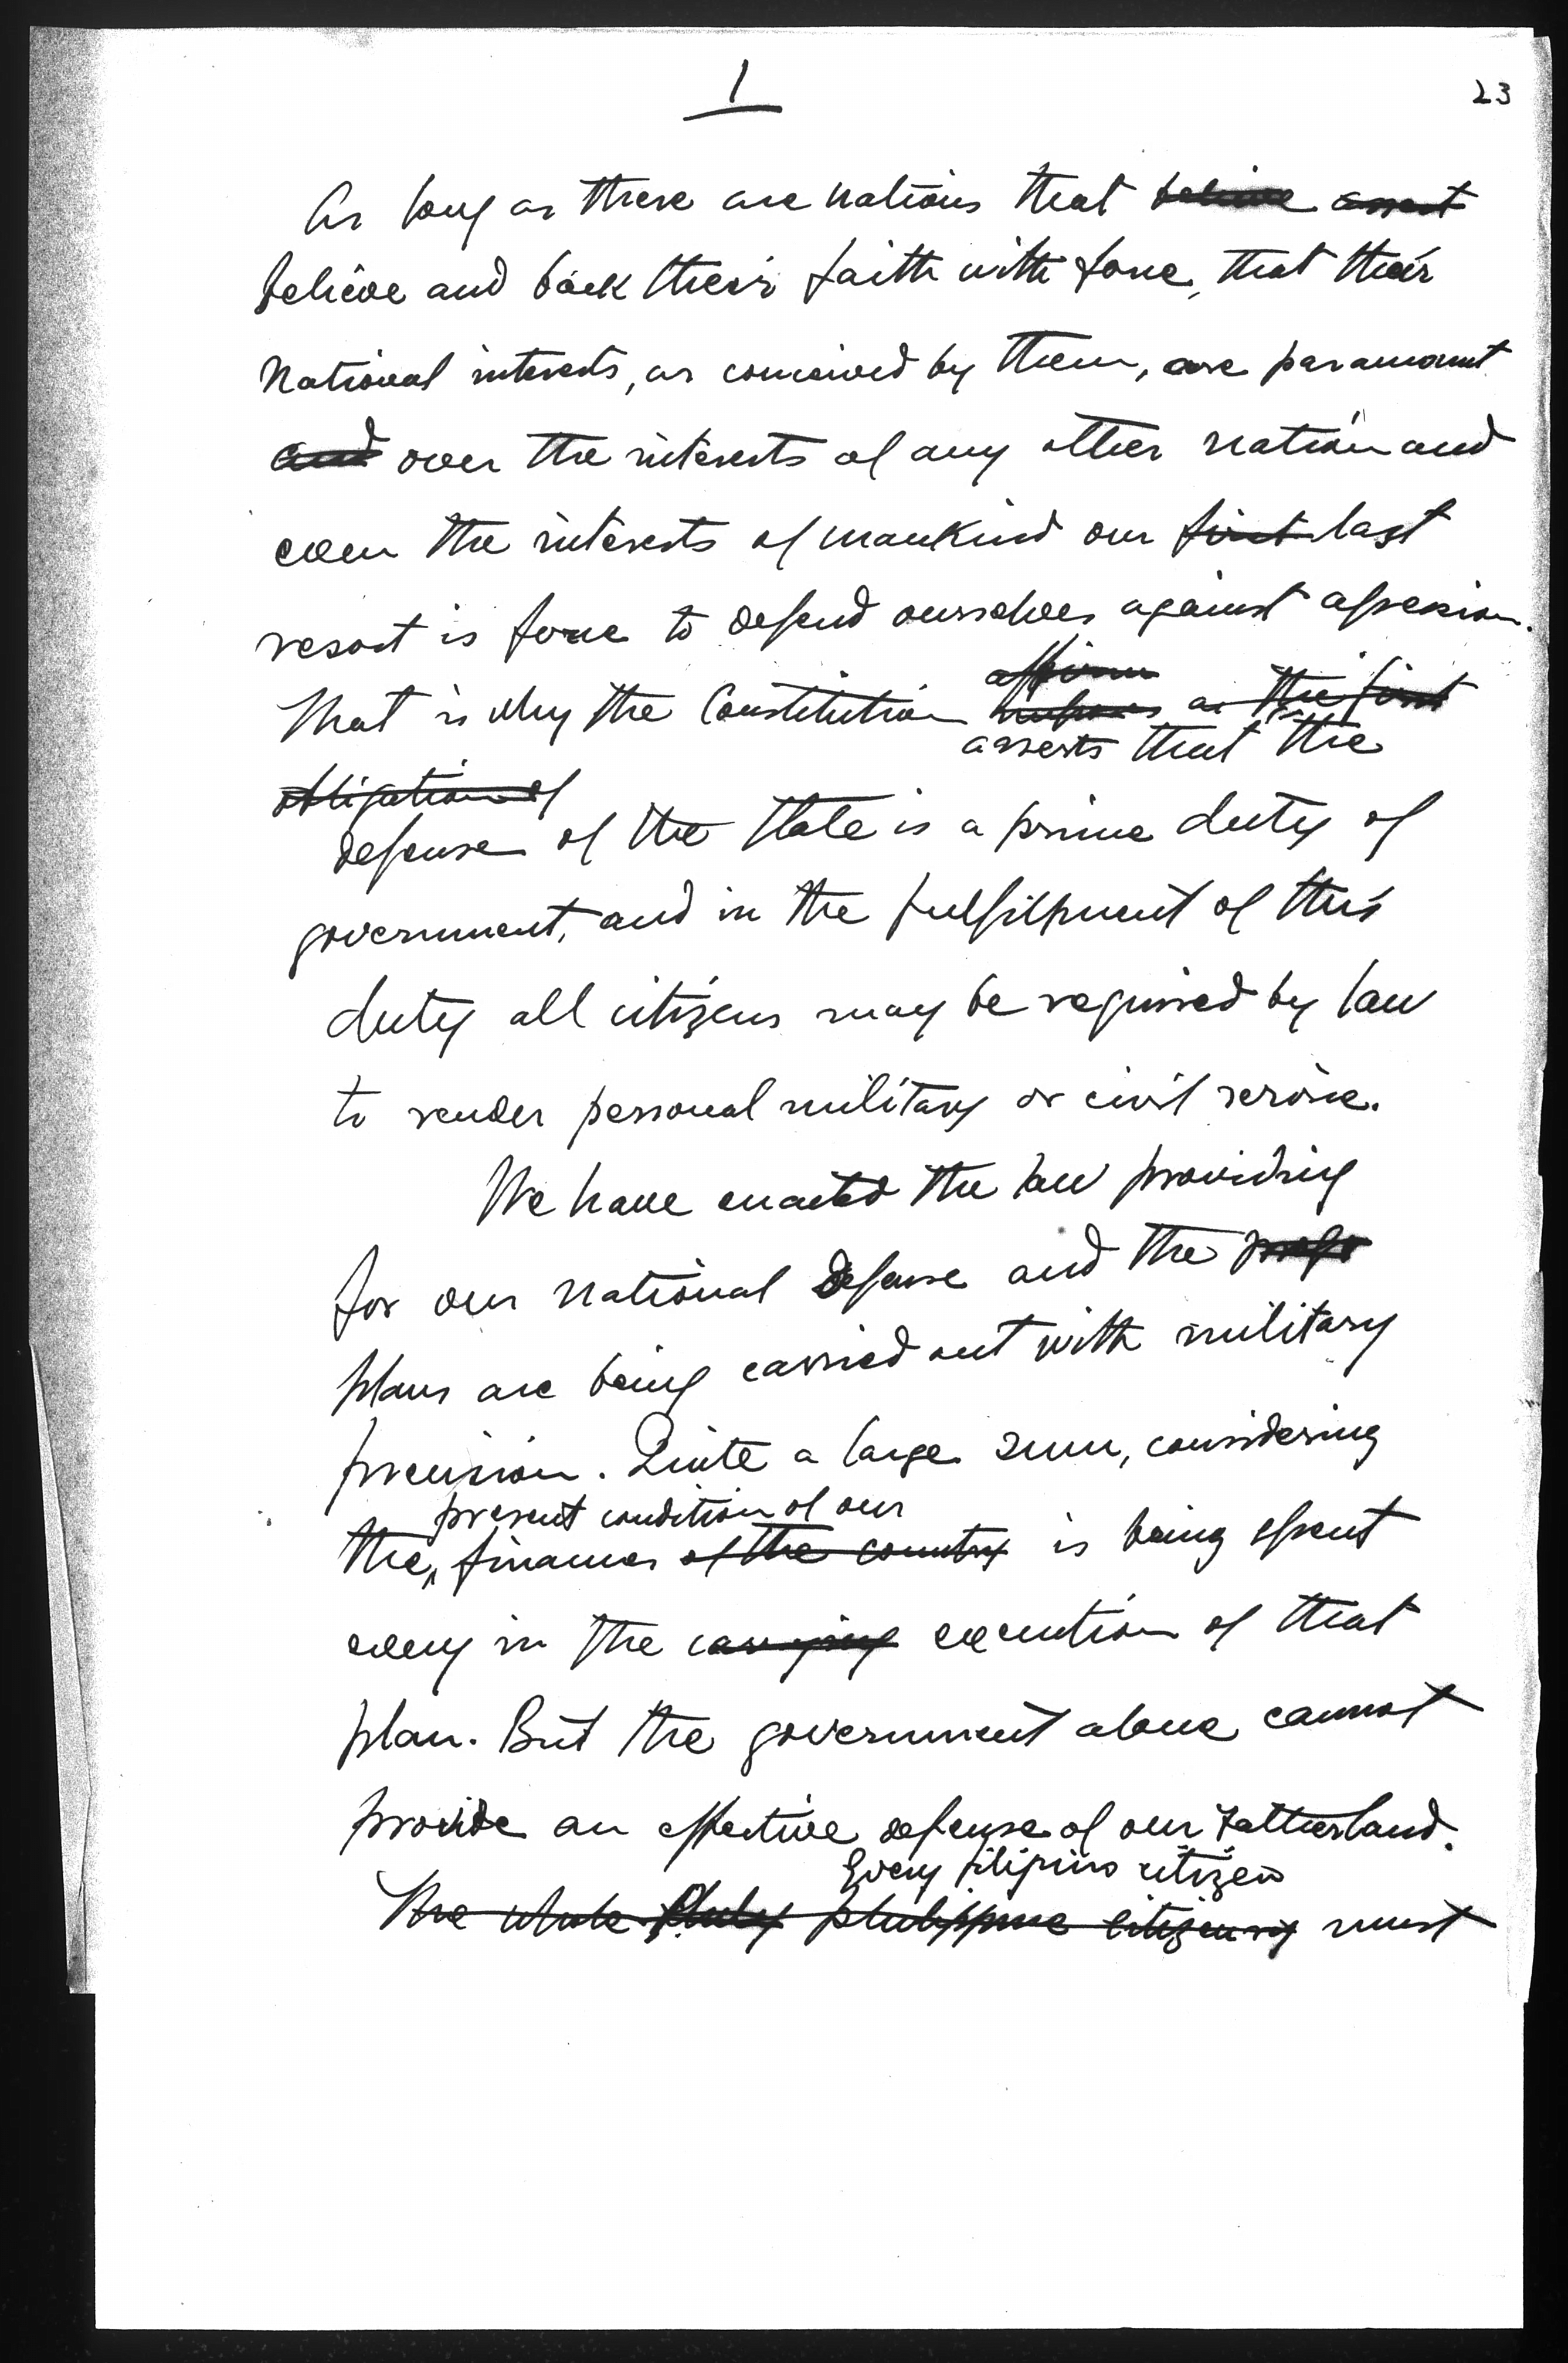 1
23
As long as there are nations that believe assert
believe and back their faith with force, that their
national interests, as conceived by them, are paramount
and over the interests of any other nation and
even the interests of mankind our first last
resort is force to defend ourselves against aggression.
affirm
That is why the Constitution as the first
asserts that the
obligation of
defense of the State is a prime duty of
government, and in the fulfillment of this
duty all citizens may be required by law
to render personal military or civil service.
We have enacted the law providing
for our national defense and the
plans are being carried out with military
precision. Quite a large sum, considering
present condition of our
the finances of the country is being spent
every in the carrying execution of that
plan. But the government alone cannot
provide an effective defense of our Fatherland.
Every filipino citizen
The whole philippine citizenry must